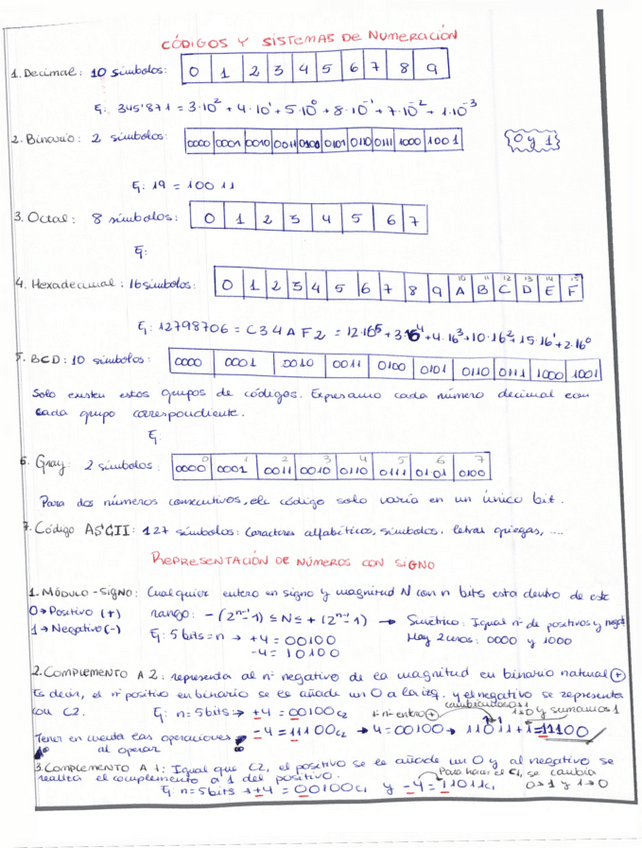 CÓDIGOS Y SISTEMAS DE NUMERACIÓN
1. Decimal: 10 símbolos: 0 1 2 3 4 5 6 7 8 9
Ej: 345'871 = 3·10² + 4·10¹ + 5·10⁰ + 8·10⁻¹ + 7·10⁻² + 1·10⁻³
2. Binario: 2 símbolos: 0000 0001 0010 0011 0100 0101 0110 0111 1000 1001 0 y 1
Ej: 19 = 10011
3. Octal: 8 símbolos: 0 1 2 3 4 5 6 7
Ej:
4. Hexadecimal: 16 símbolos: 0 1 2 3 4 5 6 7 8 9 A 10 B 11 C 12 D 13 E 14 F 15
Ej: 12798706 = C34AF2 = 12·16⁵ + 3·16⁴ + 4·16³ + 10·16² + 15·16¹ + 2·16⁰
5. BCD: 10 símbolos: 0000 0001 0010 0011 0100 0101 0110 0111 1000 1001
Solo existen estos grupos de códigos. Expresamo cada número decimal con
cada grupo correspondiente.
Ej:
6. Gray: 2 símbolos: 0 1 2 3 4 5 6 7
0000 0001 0011 0010 0110 0111 0101 0100
Para dos números consecutivos, el código solo varía en un único bit.
7. Código ASCII: 127 símbolos: Caracteres alfabéticos, símbolos, letras griegas, ...
REPRESENTACIÓN DE NÚMEROS CON SIGNO
1. MÓDULO-SIGNO: Cualquier entero en signo y magnitud N con n bits esta dentro de este
0 → Positivo (+) rango: -(2ⁿ⁻¹-1) ≤ N ≤ +(2ⁿ⁻¹-1) → Simétrico: Igual nº de positivos y negat
1 → Negativo (-) Ej: 5 bits = n → +4 = 00100 Hay 2 ceros: 0000 y 1000
-4 = 10100
2. COMPLEMENTO A 2: representa al nº negativo de la magnitud en binario natural (+)
Es decir, el nº positivo en binario se le añade un 0 a la izq. y el negativo se representa
con C2. Ej: n = 5 bits → +4 = 00100 C2 nº entero (+) 1→0 y sumamos 1
Tener en cuenta las operaciones -4 = 11100 C2 → 4 = 00100 → 11011 + 1 = 11100
al operar
3. COMPLEMENTO A 1: Igual que C2, el positivo se le añade un 0 y al negativo se
realiza el complemento a 1 del positivo. Para hacer el C1, se cambia
Ej: n = 5 bits → +4 = 00100 C1 y -4 = 11011 C1 0→1 y 1→0